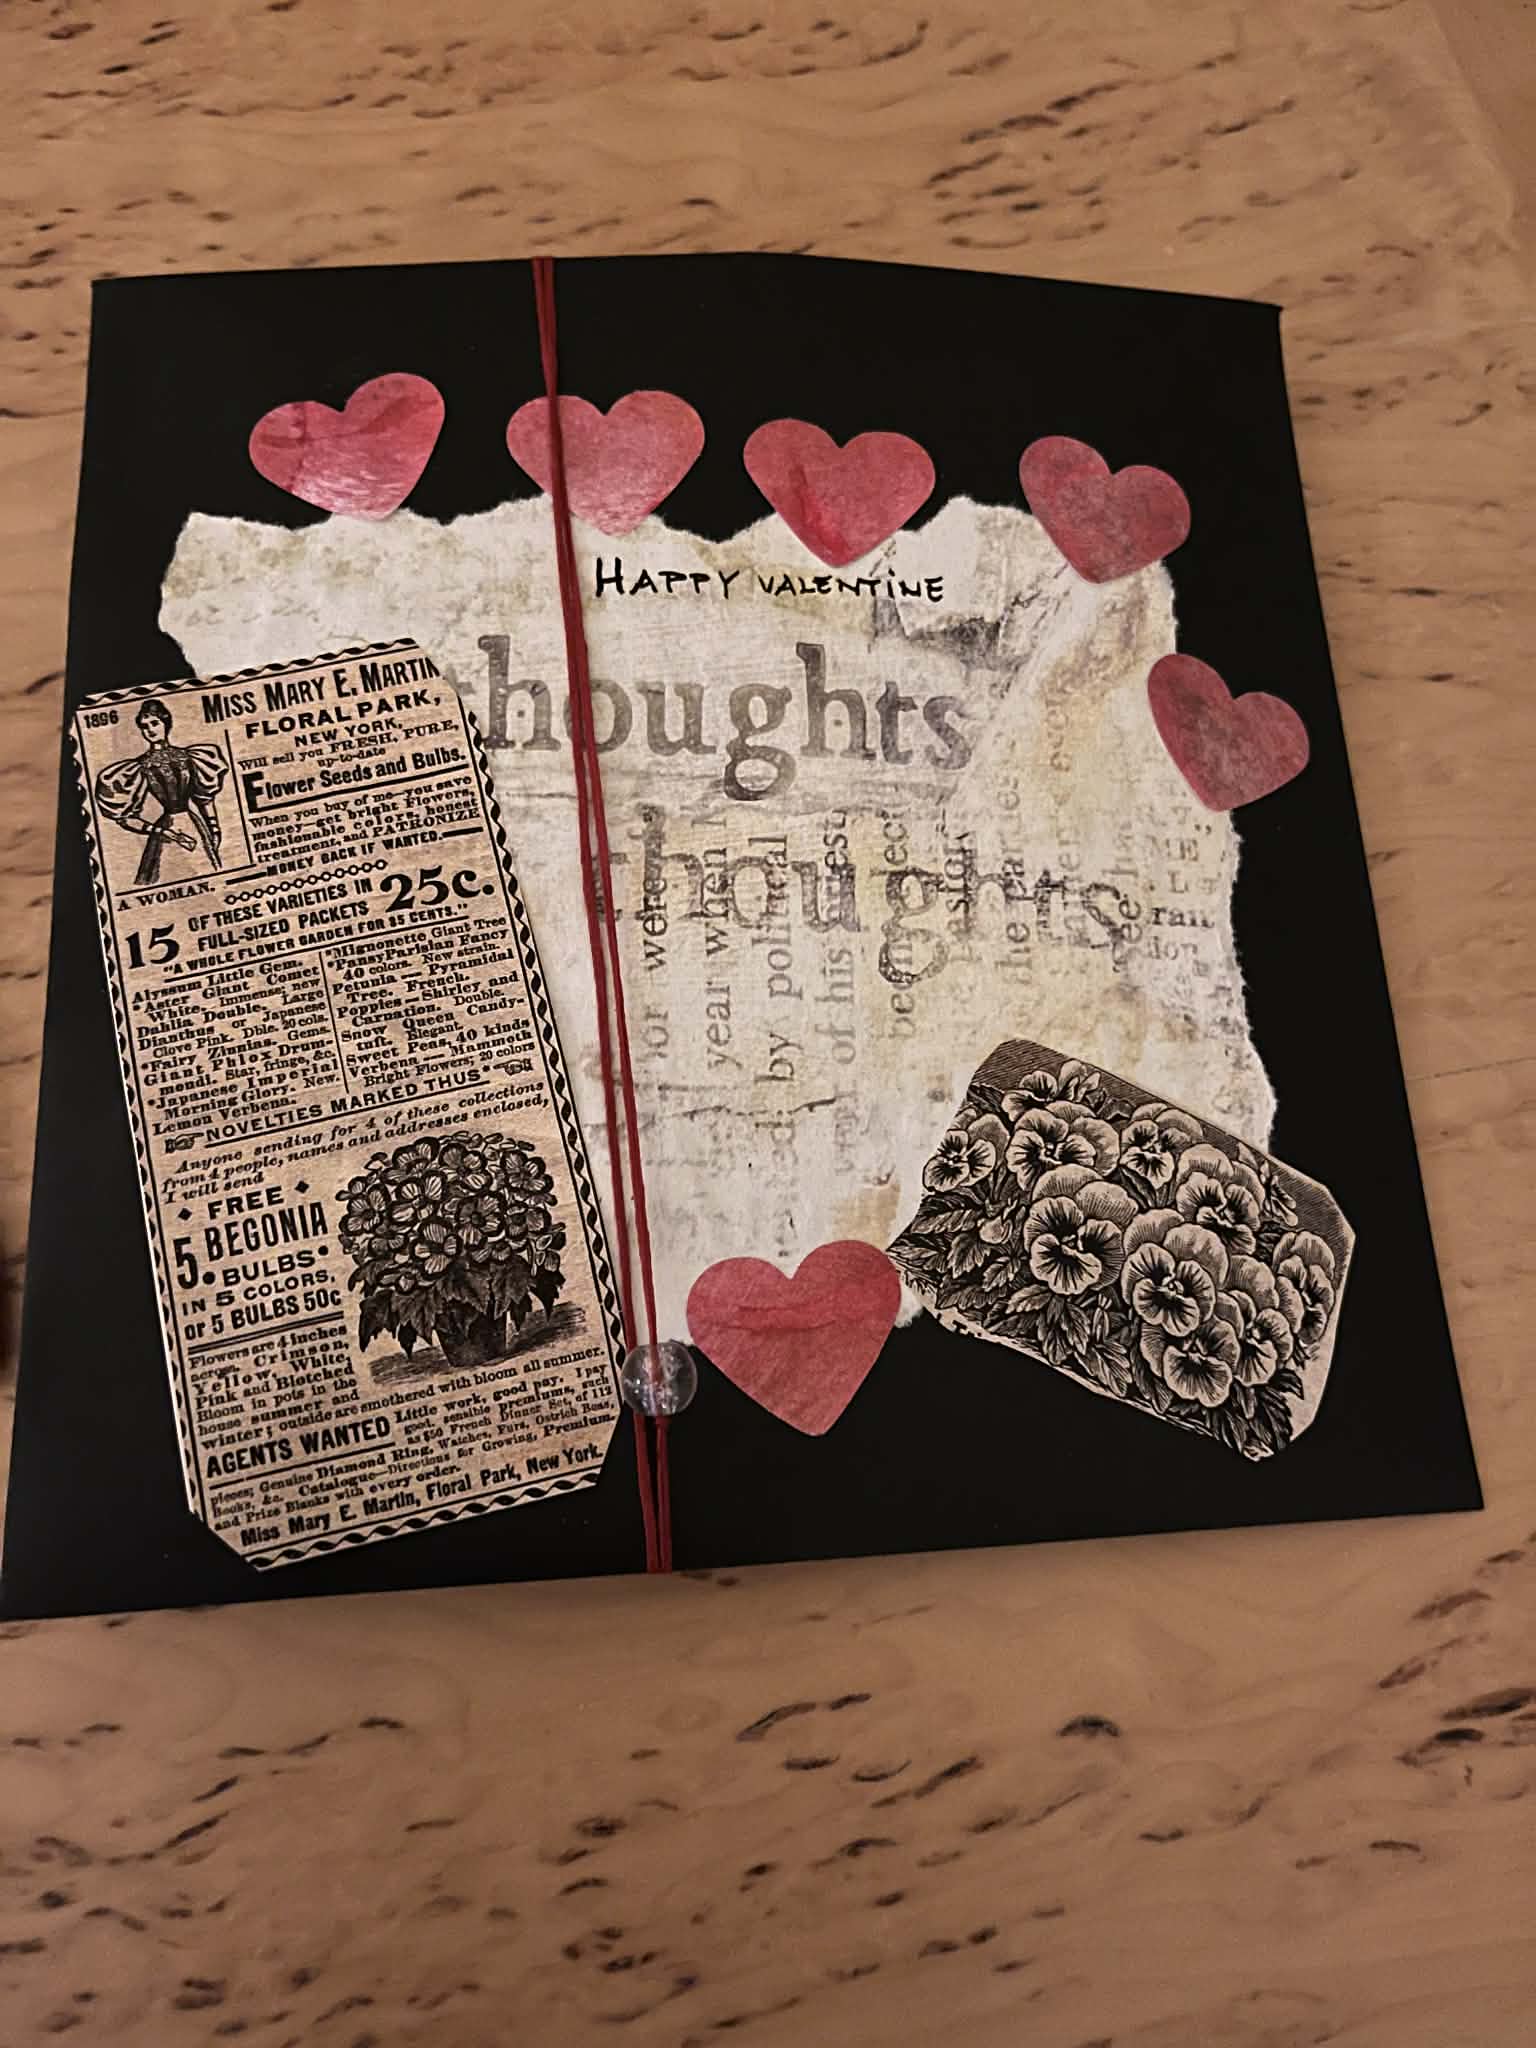 HAPPY VALENTINE
thoughts
thoughts
or were
year when
by political
of his
being
the parties
see
1896
MISS MARY E. MARTIN
FLORAL PARK,
NEW YORK,
Will sell you FRESH, PURE,
up-to-date
Flower Seeds and Bulbs.
When you buy of me—you save
money—get bright Flowers,
fashionable colors, honest
treatment, and PATRONIZE
A WOMAN. —MONEY BACK IF WANTED.—
15 OF THESE VARIETIES IN
FULL-SIZED PACKETS 25c.
"A WHOLE FLOWER GARDEN FOR 25 CENTS."
Alyssum Little Gem.
*Aster Giant Comet
White. Immense; new
Dahlia Double. Large
Dianthus or Japanese
Clove Pink. Dble. 20 cols.
*Fairy Zinnias. Gems.
Giant Phlox Drum-
mondi. Star, fringe, &c.
*Japanese Imperial
Morning Glory. New.
Lemon Verbena.
*Mignonette Giant Tree
*Pansy Parisian Fancy
40 colors. New strain.
Petunia — Pyramidal
Tree. French.
Poppies — Shirley and
Carnation. Double.
Snow Queen Candy-
tuft. Elegant.
Sweet Peas, 40 kinds
Verbena — Mammoth
Bright Flowers; 20 colors
NOVELTIES MARKED THUS*
Anyone sending for 4 of these collections
from 4 people, names and addresses enclosed,
I will send
FREE
5 BEGONIA
BULBS
IN 5 COLORS,
or 5 BULBS 50c
Flowers are 4 inches
across. Crimson,
Yellow, White,
Pink and Blotched
Bloom in pots in the
house summer and
winter; outside are smothered with bloom all summer.
AGENTS WANTED Little work, good pay. I pay
good, sensible premiums, such
as $50 French Dinner Set, of 112
pieces; Genuine Diamond Ring, Watches, Furs, Ostrich Boas,
Books, &c. Catalogue—Directions for Growing, Premium
and Prize Blanks with every order.
Miss Mary E. Martin, Floral Park, New York.